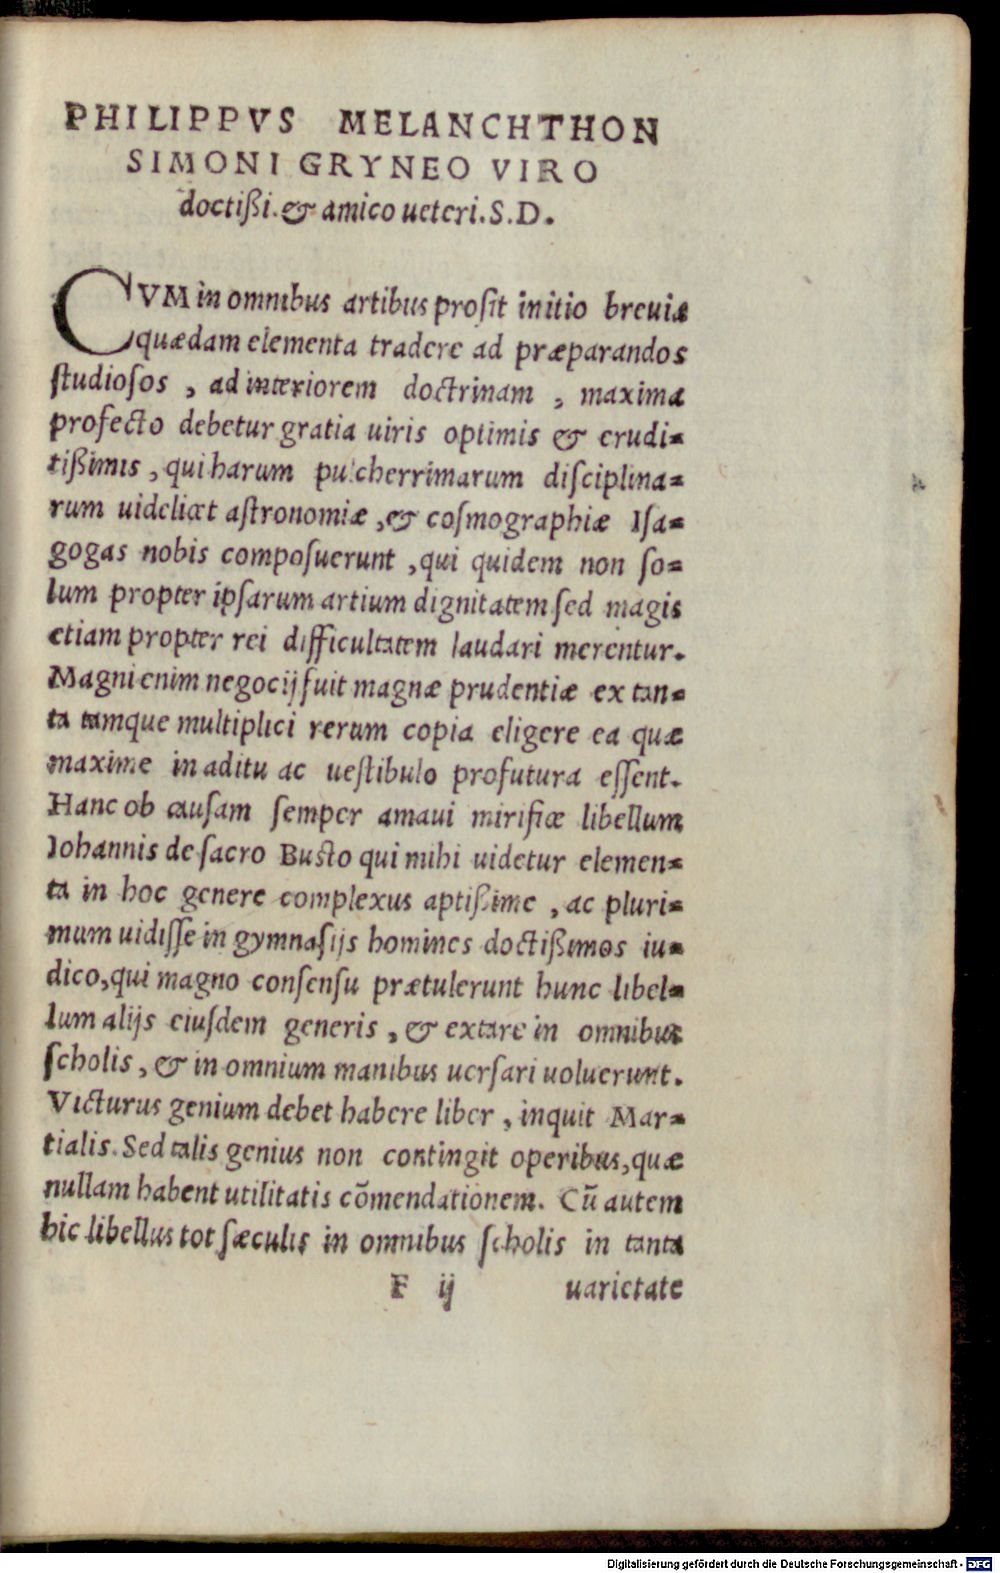 PHILIPPVS MELANCHTHON
SIMONI GRYNEO VIRO
doctißi. & amico ueteri. S. D.
CVM in omnibus artibus proſit initio breuia
quædam elementa tradere ad præparandos
ſtudioſos, ad interiorem doctrinam, maxima
profecto debetur gratia uiris optimis & erudi=
tißimis, qui harum pulcherrimarum diſciplina=
rum uidelicet aſtronomiæ, & coſmographiæ Iſa=
gogas nobis compoſuerunt, qui quidem non ſo=
lum propter ipſarum artium dignitatem ſed magis
etiam propter rei difficultatem laudari merentur.
Magni enim negocij fuit magnæ prudentiæ ex tan=
ta tamque multiplici rerum copia eligere ea quæ
maxime in aditu ac ueſtibulo profutura eſſent.
Hanc ob cauſam ſemper amaui mirifice libellum
Iohannis de ſacro Buſto qui mihi uidetur elemen=
ta in hoc genere complexus aptißime, ac pluri=
mum uidiſſe in gymnaſijs homines doctißimos iu=
dico, qui magno conſenſu prætulerunt hunc libel=
lum alijs eiuſdem generis, & extare in omnibus
ſcholis, & in omnium manibus uerſari uoluerunt.
Victurus genium debet habere liber, inquit Mar=
tialis. Sed talis genius non contingit operibus, quæ
nullam habent utilitatis cōmendationem. Cū autem
hic libellus tot ſæculis in omnibus ſcholis in tanta
F ij uarietate
Digitalisierung gefördert durch die Deutsche Forschungsgemeinschaft - DFG